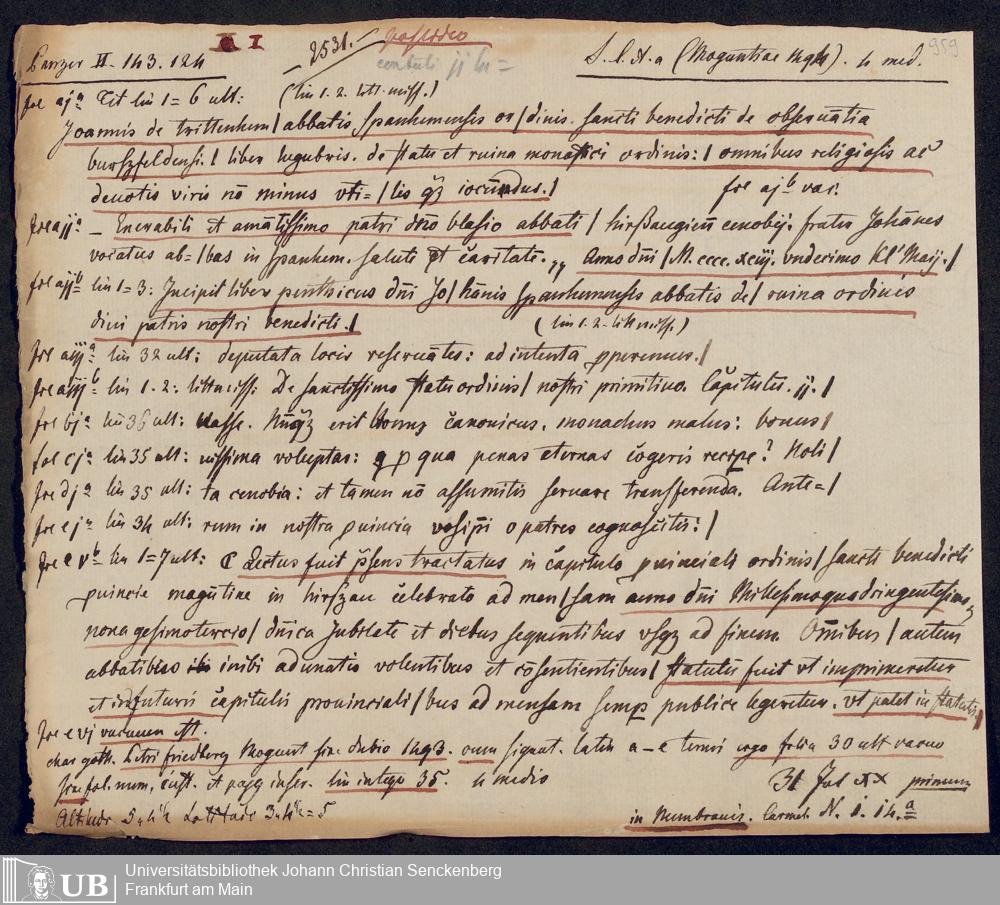 I
959
2531.
possideo
contuli
Panzer II. 143. 124
S. l. & a (Moguntiae 1494). 4 med.
fol aj a Tit lin 1 = 6 ult: (lin 1. 2. litt. miss.)
Joannis de trittenhem / abbatis spanhemensis or / dinis. sancti benedicti de obseruātia
burszfeldensi. / liber lugubris. de statu et ruina monastici ordinis: / omnibus religiosis ac
deuotis viris nō minus vti= / lis qȝ iocūndus. / fol aj b vac.
fol aij a – Uenerabili et amātissimo patri dno blasio abbati / hirßaugieñ cenobij. frater Johānes
vocatus ab= / bas in spanhem. salutē et caritatē. Anno dñi / M. cccc. xciij. vndecimo Kl' Maij. /
fol aij b lin 1 = 3: Incipit liber penthicus dñi Jo / hānis spanhemensis abbatis de / ruina ordinis
diui patris nostri benedicti. / (lin 1. 2. litt miss.)
fol aiij a lin 32 ult: deputata locis reseruātes: ad intenta pperemus. /
fol aiij b lin 1. 2: litt miss: De sanctissimo statu ordinis / nostri primitiuo. Capitulū. ij. /
fol bj a lin 36 ult: uasse. Nūqȝ erit bonus canonicus, monachus malus: bonus /
fol cj a lin 35 ult: uissima voluptas: p qua penas eternas cogeris recipe? Noli /
fol dj a lin 35 ult: ta cenobia: et tamen nō assumitis seruare transferenda. Ante= /
fol ej a lin 34 ult: rum in nostra puincia vosipi o patres cognoscitis: /
fol e v b lin 1 = 7 ult: C Lectus fuit psens tractatus in capitulo puinciali ordinis / sancti benedicti
puincie magūtine in hirszau celebrato ad men / sam anno dñi Millesimoquadringentesimo
nonagesimotercio / dñica Jubilate et diebus sequentibus vsqȝ ad finem Omībus / autem
abbatibus inibi adunatis volentibus et cōsentientibus / statutū fuit vt imprimeretur
et in futuris capitulis prouinciali / bus ad mensam semp publice legeretur. vt patet in statutis. /
fol e vj vacuum est.
char goth. Petri friedberg Mogunt sine dubio 1493. cum signat. latin a – e terni ergo folia 30 ult vacuo
sine fol. num, cust. et pagg inscr. lin integr 35. 4 medio
31 Jul primum
Altitudo 5, 4 1/2 Latitudo 3, 4 1/2 = 5
in Membranis. Carmel. N. 1. 14. a
Universitätsbibliothek Johann Christian Senckenberg
Frankfurt am Main
UB